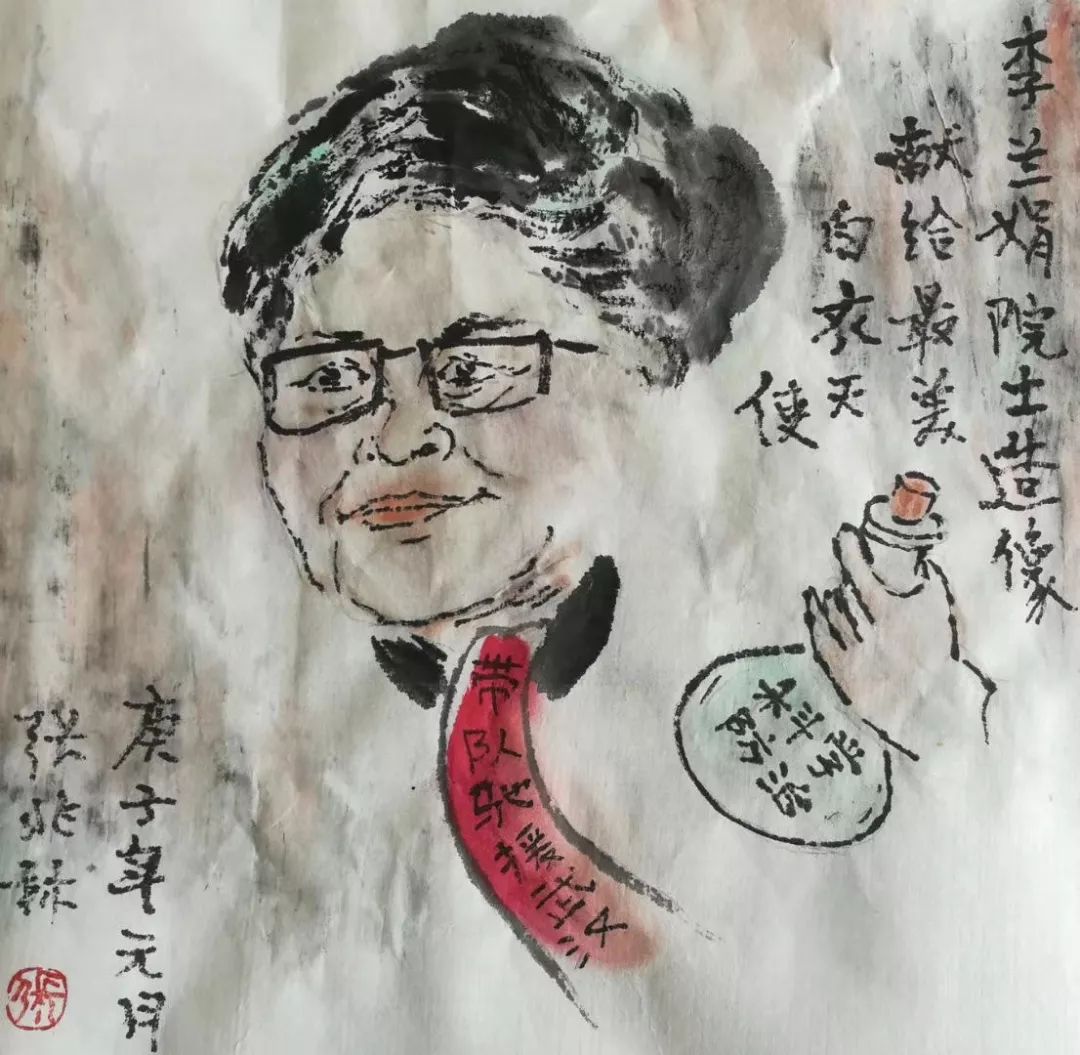 李兰娟院士造像
献给最美
白衣天
使
科学
防治
带队驰援武汉
庚子年元月
张